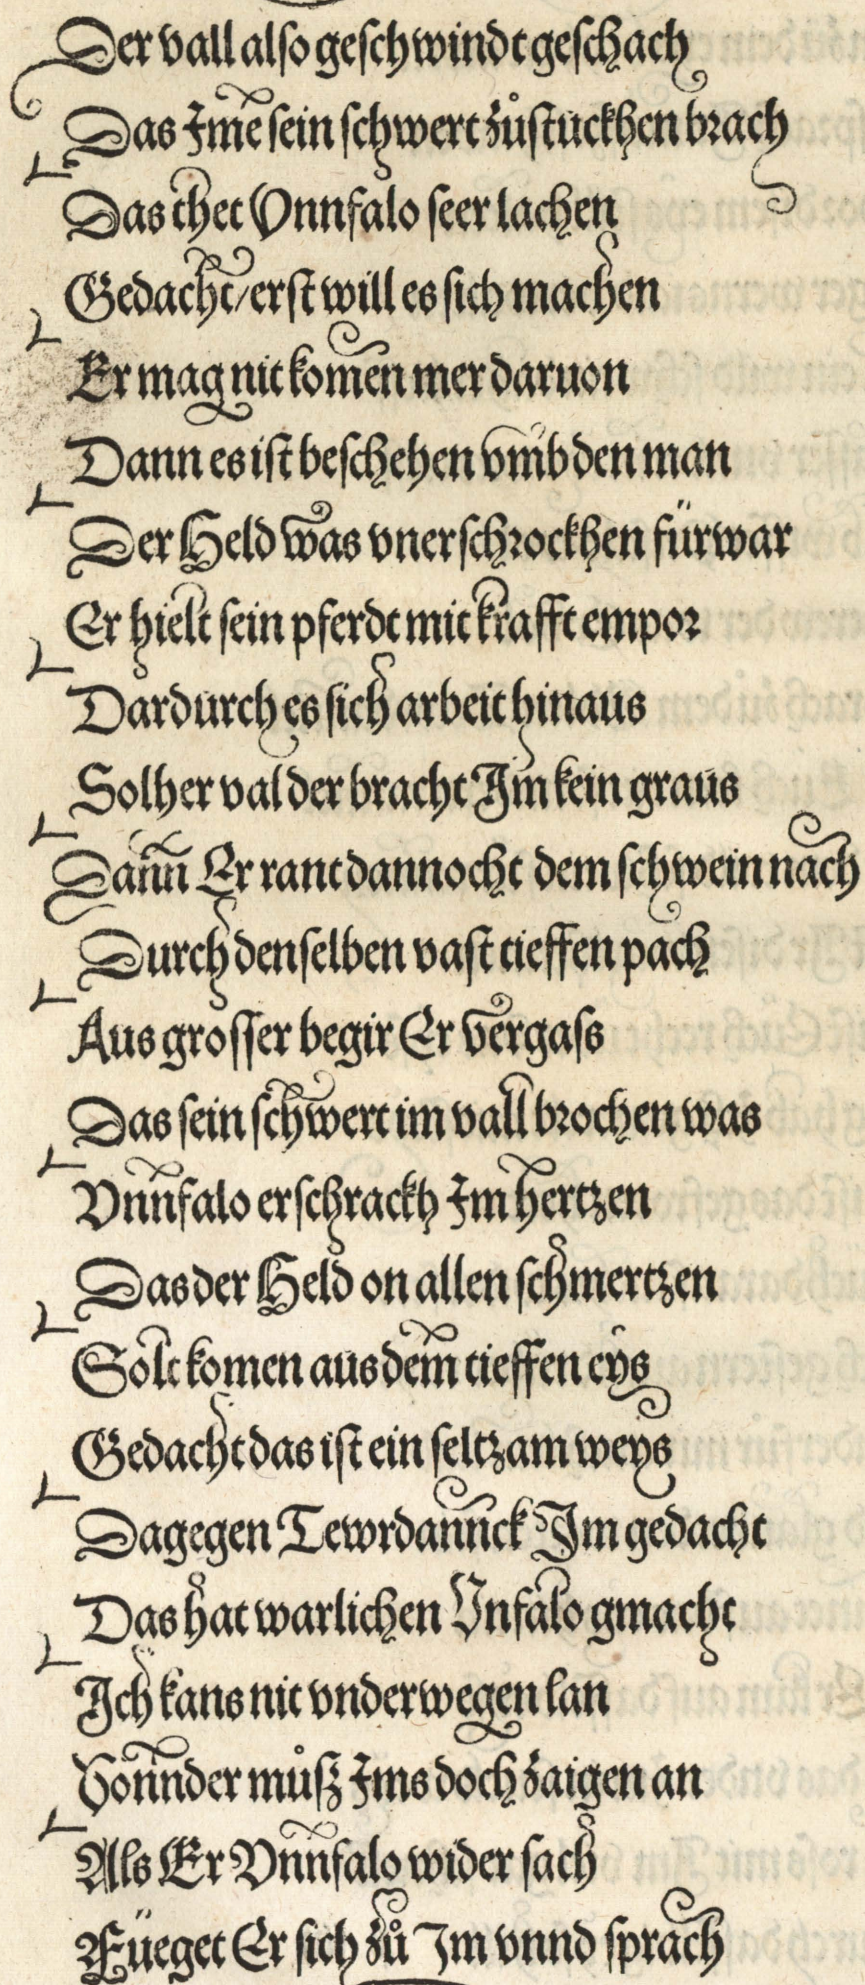 Der vall also geschwindt geschach
Das Ime sein schwert zůstuckhen brach
Das thet Vnnfalo seer lachen
Gedacht/ erst will es sich machen
Er mag nit komen mer daruon
Dann es ist beschehen vmb den man
Der Held was vnerschrockhen fürwar
Er hielt sein pferdt mit krafft empor
Dardurch es sich arbeit hinaus
Solher val der bracht Im kein graus
Dann Er rant dannocht dem schwein nach
Durch denselben vast tieffen pach
Aus grosser begir Er vergass
Das sein schwert im vall brochen was
Vnnfalo erschrackh Im hertzen
Das der Held on allen schmertzen
Solt komen aus dem tieffen eys
Gedacht das ist ein seltzam weys
Dagegen Tewrdannck Im gedacht
Das hat warlichen Vnfalo gmacht
Ich kans nit vnderwegen lan
Sonnder můß Ims doch zaigen an
Als Er Vnnfalo wider sach
Füeget Er sich zů Im vnnd sprach